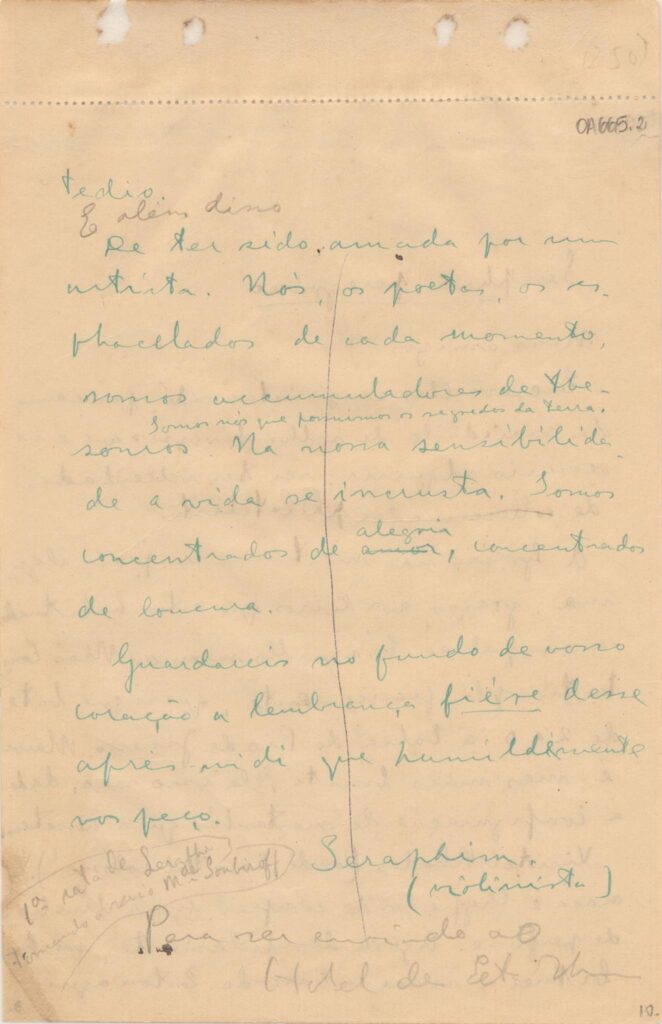 OA665.2
tedio.
E além disso
De ter sido amada por um
artista. Nós, os poetas, os es-
phacelados de cada momento,
somos accumuladores de the-
Somos nós que possuimos os segredos da terra.
souros. Na nossa sensibilida-
de a vida se incrusta. Somos
alegria
concentrados de amor, concentrados
de loucura.
Guardareis no fundo de vosso
coração a lembrança fiére desse
après-midi que humildemente
vos peço.
Seraphim.
(violinista)
1ª rata de Seraphim
tomando
Para ser enviado ao
Hotel de
10.